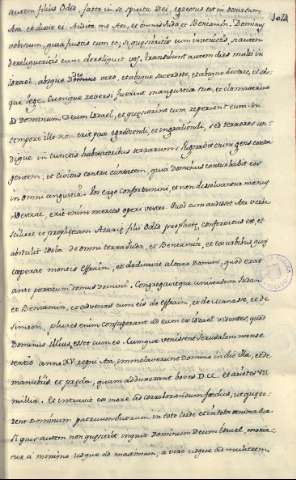 autem filius Oded, facto in se spiritu Dei, egressus est in occursum
Asa, et dixit ei: Audite me, Asa, et omnis Juda et Benjamin. Dominus
vobiscum, quia fuistis cum eo; si quaesieritis eum invenietis, si autem
dereliqueritis eum derelinquet vos, transibunt autem dies multi in
Israel absque Domino vero, et absque sacerdote, et absque doctore, et abs-
que lege. Cumque reversi fuerint in angustia sua, et clamaverint
ad Dominum Deum Israel, et quaesierint eum, reperient eum. In
tempore illo non erit pax egredienti, et ingredienti, sed terrores un-
dique in cunctis habitatoribus terrarum: Pugnabit enim gens contra
gentem, et civitas contra civitatem, quia Dominus conturbabit eos
in omni angustia. Vos ergo confortamini, et non dissolvantur manus
vestrae, erit enim merces operi vestro. Quod cum audisset Asa verba
scilicet et prophetiam Azariae filii Oded prophetae, confortatus est, et
abstulit idola de omni terra Juda, et Benjamin, et ex urbibus, quas
ceperat montis Effraim, et dedicavit altare Domini, quod erat
ante porticum domus Domini. Congregavitque universum Judam
et Benjamin, et advenas cum eis de Effraim, et de Manasse, et de
Simeon, plures enim confugerant ad eum ex Israel videntes, quod
Dominus illius esset cum eo. Cumque venissent Jerusalem mense
tertio anno XV regni Asa, immolaverunt Domino in die illa, et de
manubiis et praeda, quam adduxerant boves DCC et arietes VII
millia. Et intravit ex more ad corroborandum foedus, ut quaere-
rent Dominum patrum suorum in toto corde et in tota anima sua
si quis autem non quaesierit inquit Dominum Deum Israel, moria-
tur a minimo usque ad maximum, a viro usque ad mulierem,